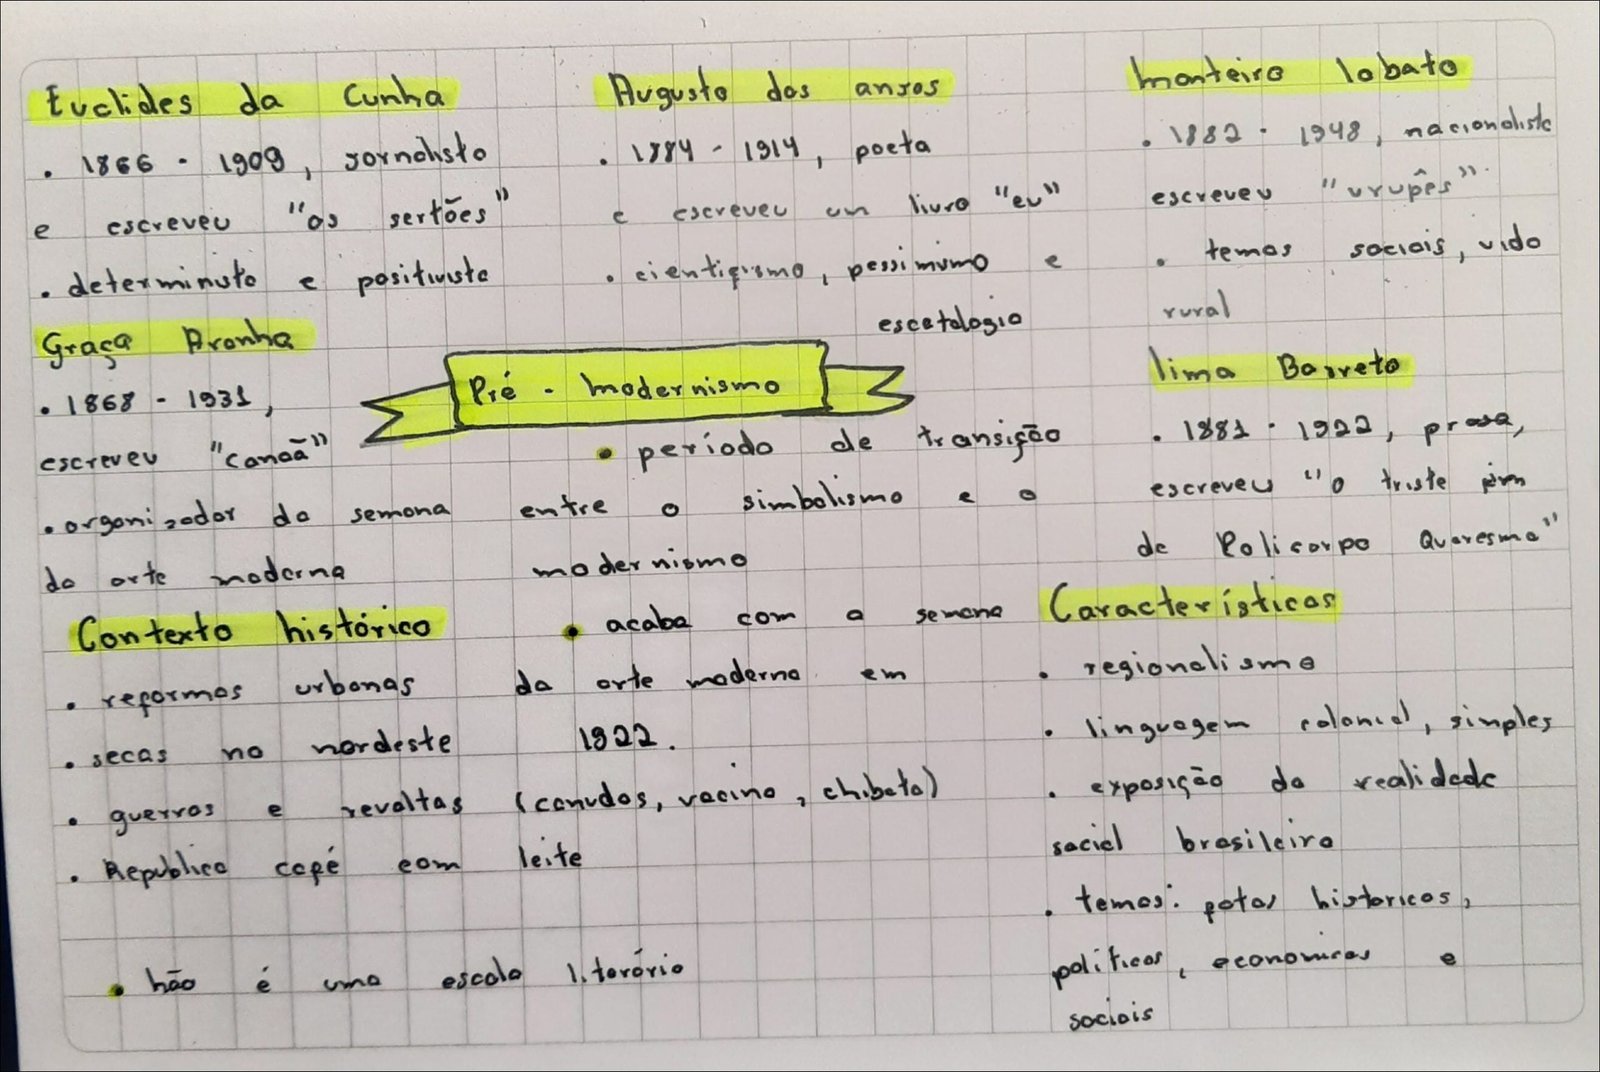 Euclides da Cunha
. 1866 - 1909, jornalista
e escreveu "os sertões"
. determinista e positivista
Graça Aranha
. 1868 - 1931,
escreveu "canaã"
. organizador da semana
da arte moderna
Contexto histórico
. reformas urbanas
. secas no nordeste
. guerras e revoltas (canudos, vacina, chibata)
. Republica café com leite
. não é uma escola literário
Augusto dos anjos
. 1884 - 1914, poeta
e escreveu un livro "eu"
. cientifismo, pessimismo e
escatologia
Pré - modernismo
. período de transição
entre o simbolismo e o
modernismo
. acaba com a semana
da arte moderna em
1922.
monteiro lobato
. 1882 - 1948, nacionalista
escreveu "urupês".
. temas sociais, vida
rural
lima Barreto
. 1881 - 1922, prosa,
escreveu "o triste fim
de Policarpo Quaresma"
Características
. regionalismo
. linguagem colonial, simples
. exposição da realidade
social brasileira
. temas: fatos historicos,
políticos, economicos e
sociais